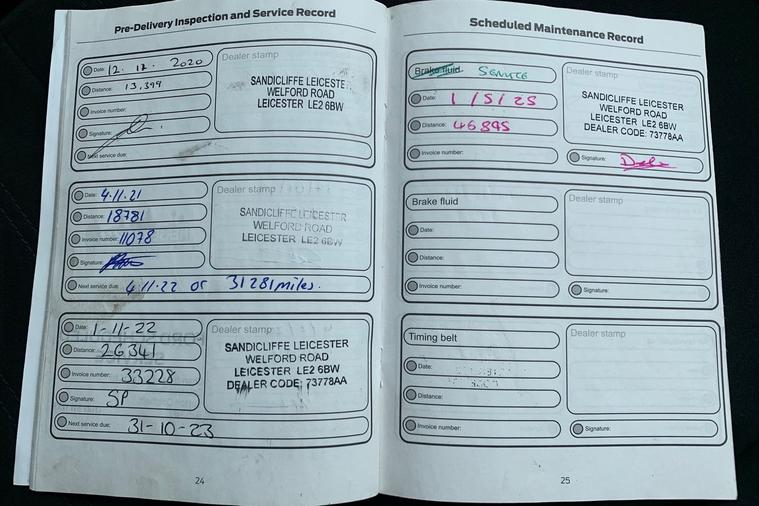 Pre-Delivery Inspection and Service Record
Date: 12. 12. 2020
Distance: 13,399
Invoice number:
Signature:
Next service due:
Dealer stamp
SANDICLIFFE LEICESTE
WELFORD ROAD
LEICESTER LE2 6BW
Date: 4.11.21
Distance: 18781
Invoice number: 11078
Signature:
Next service due: 4.11.22 or 31281 miles.
Dealer stamp
SANDICLIFFE LEICESTER
WELFORD ROAD
LEICESTER LE2 6BW
Date: 1-11-22
Distance: 26341
Invoice number: 33228
Signature: SP
Next service due: 31-10-23
Dealer stamp
SANDICLIFFE LEICESTER
WELFORD ROAD
LEICESTER LE2 6BW
DEALER CODE: 73778AA
24
Scheduled Maintenance Record
Brake fluid SERVICE
Date: 1/5/25
Distance: 46895
Invoice number:
Dealer stamp
SANDICLIFFE LEICESTER
WELFORD ROAD
LEICESTER LE2 6BW
DEALER CODE: 73778AA
Signature:
Brake fluid
Date:
Distance:
Invoice number:
Dealer stamp
Signature:
Timing belt
Date:
Distance:
Invoice number:
Dealer stamp
Signature:
25